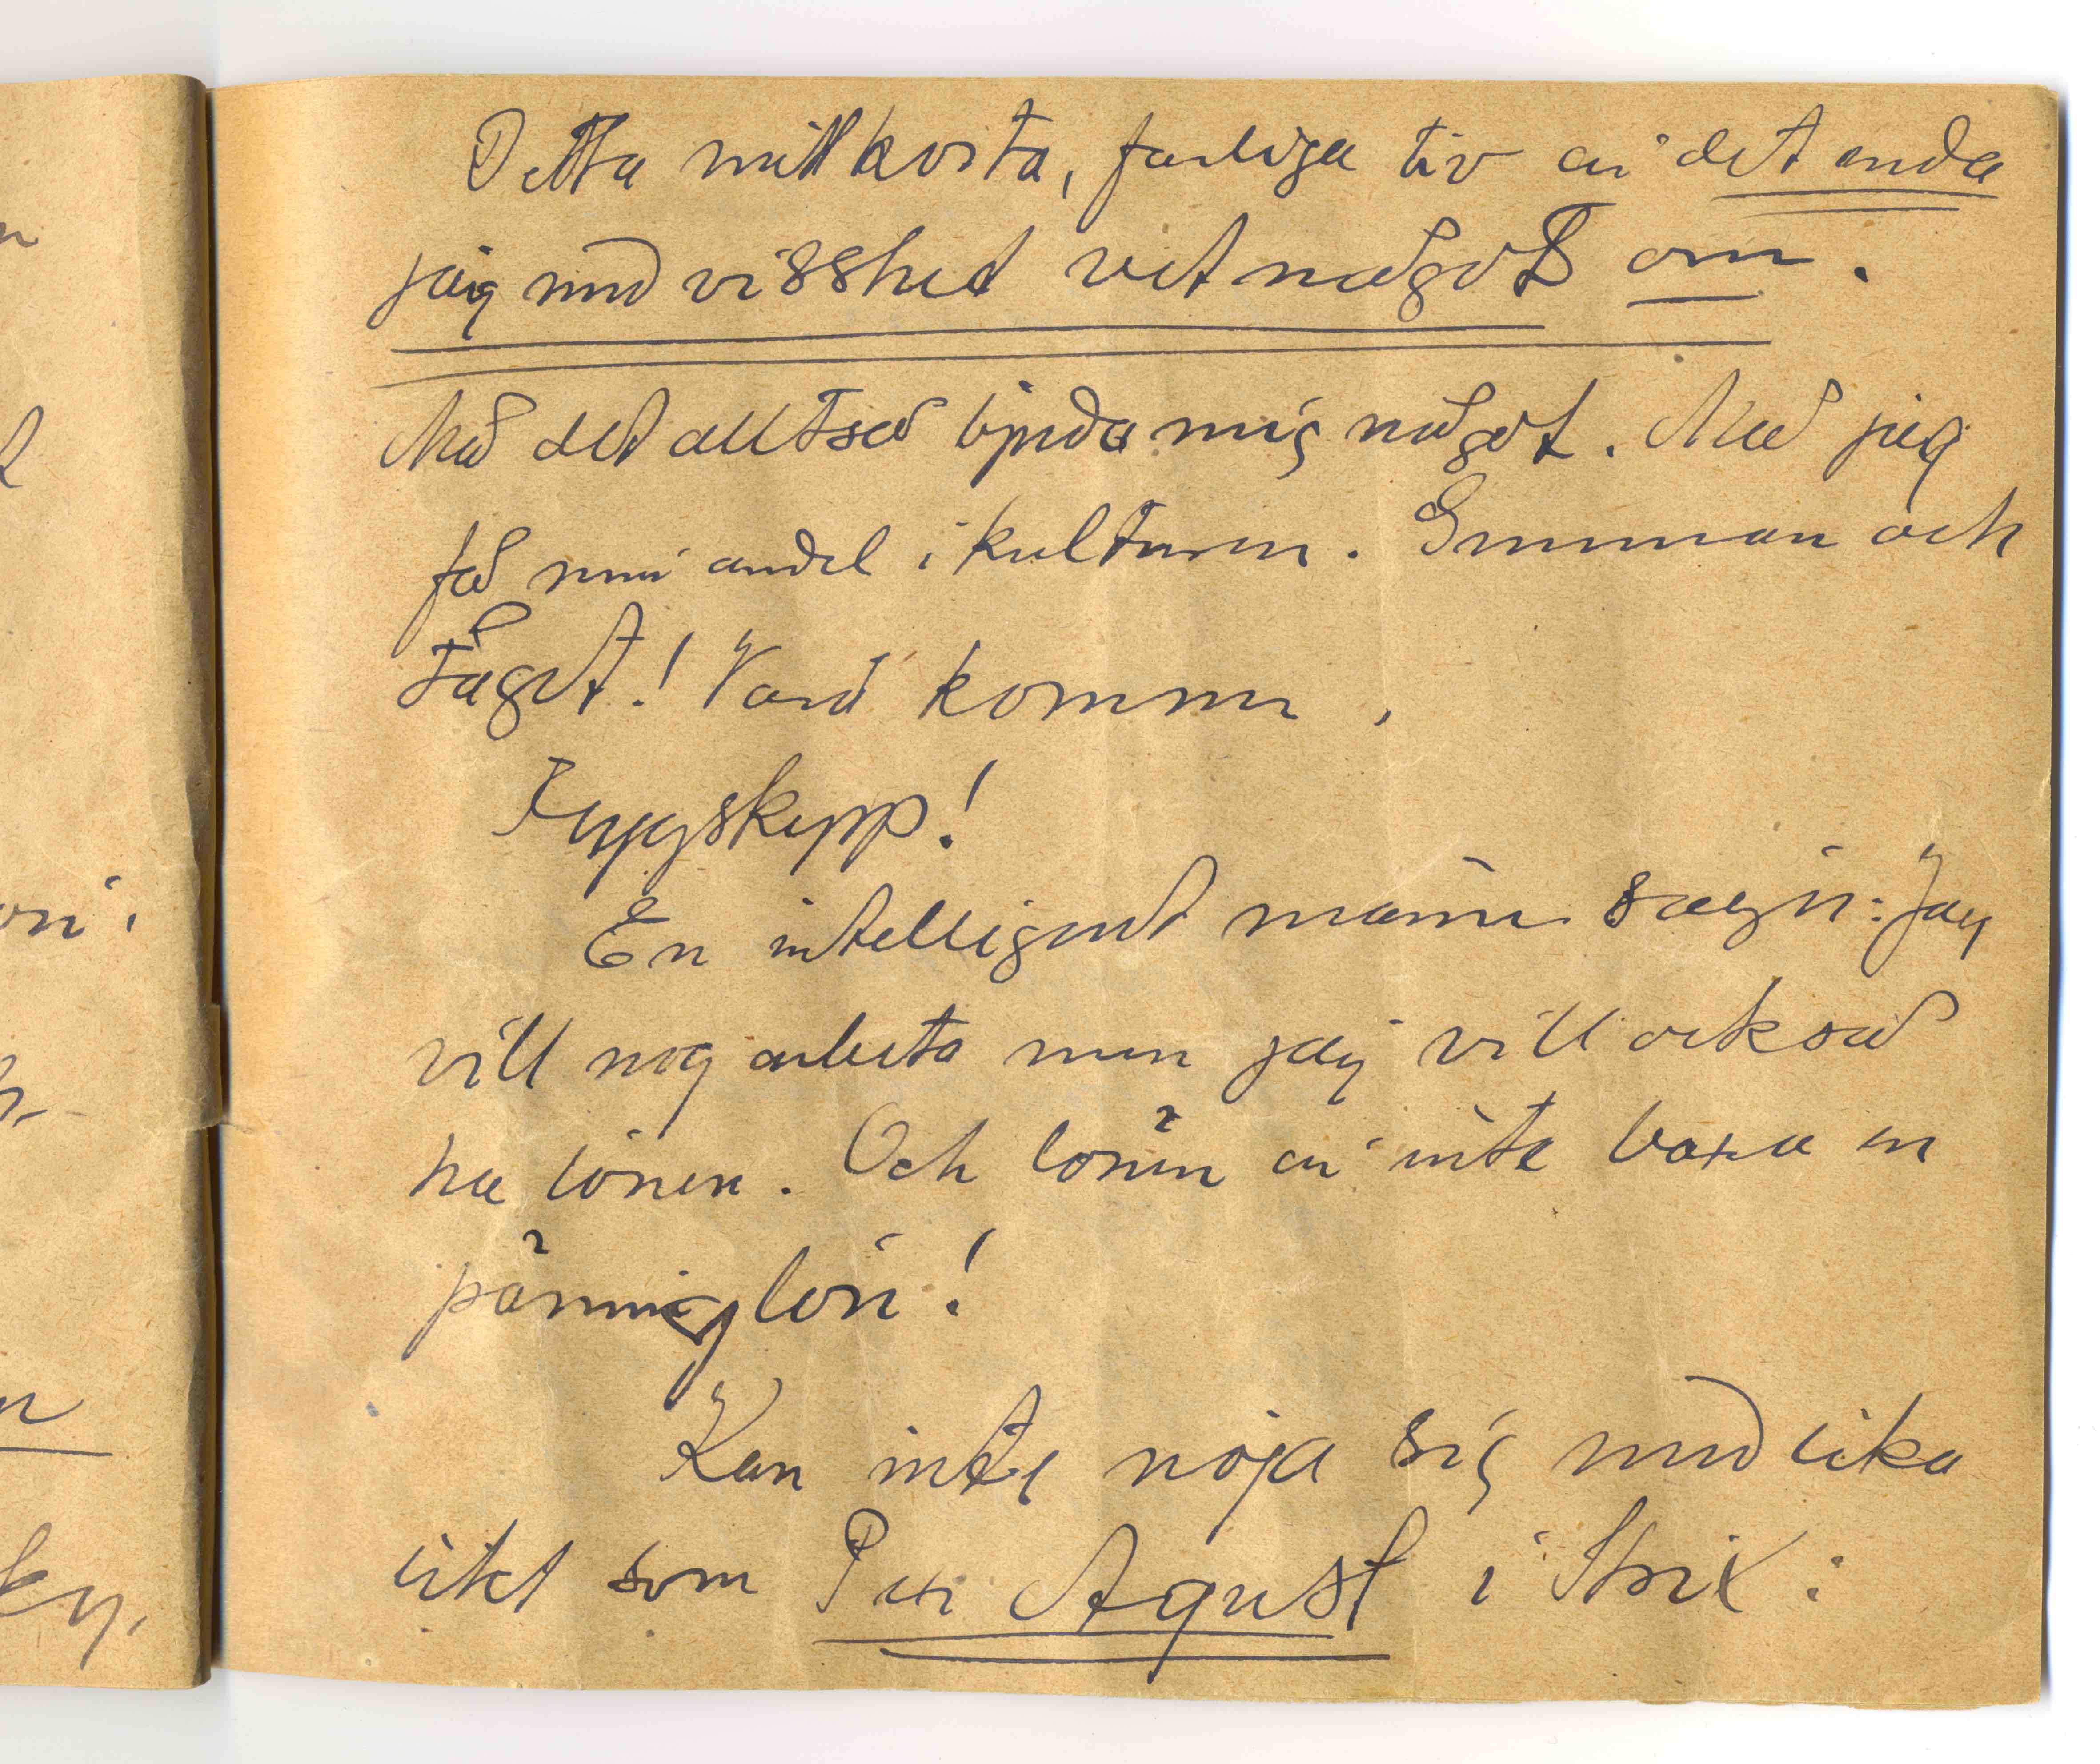 Detta mitt korta, farliga liv är det enda
jag med visshet vet något om.
Må det alltså bjuda mig något. Må jag
få min andel i kulturen. Gumman och
tåget! Vard kommer,
En intelligent männi säger: Jag
vill nog arbeta men jag vill också
ha lönen. Och lönen är inte bara en
pänninglön!
Kan inte nöja sig med lika
likt som Per Agust i Strix: